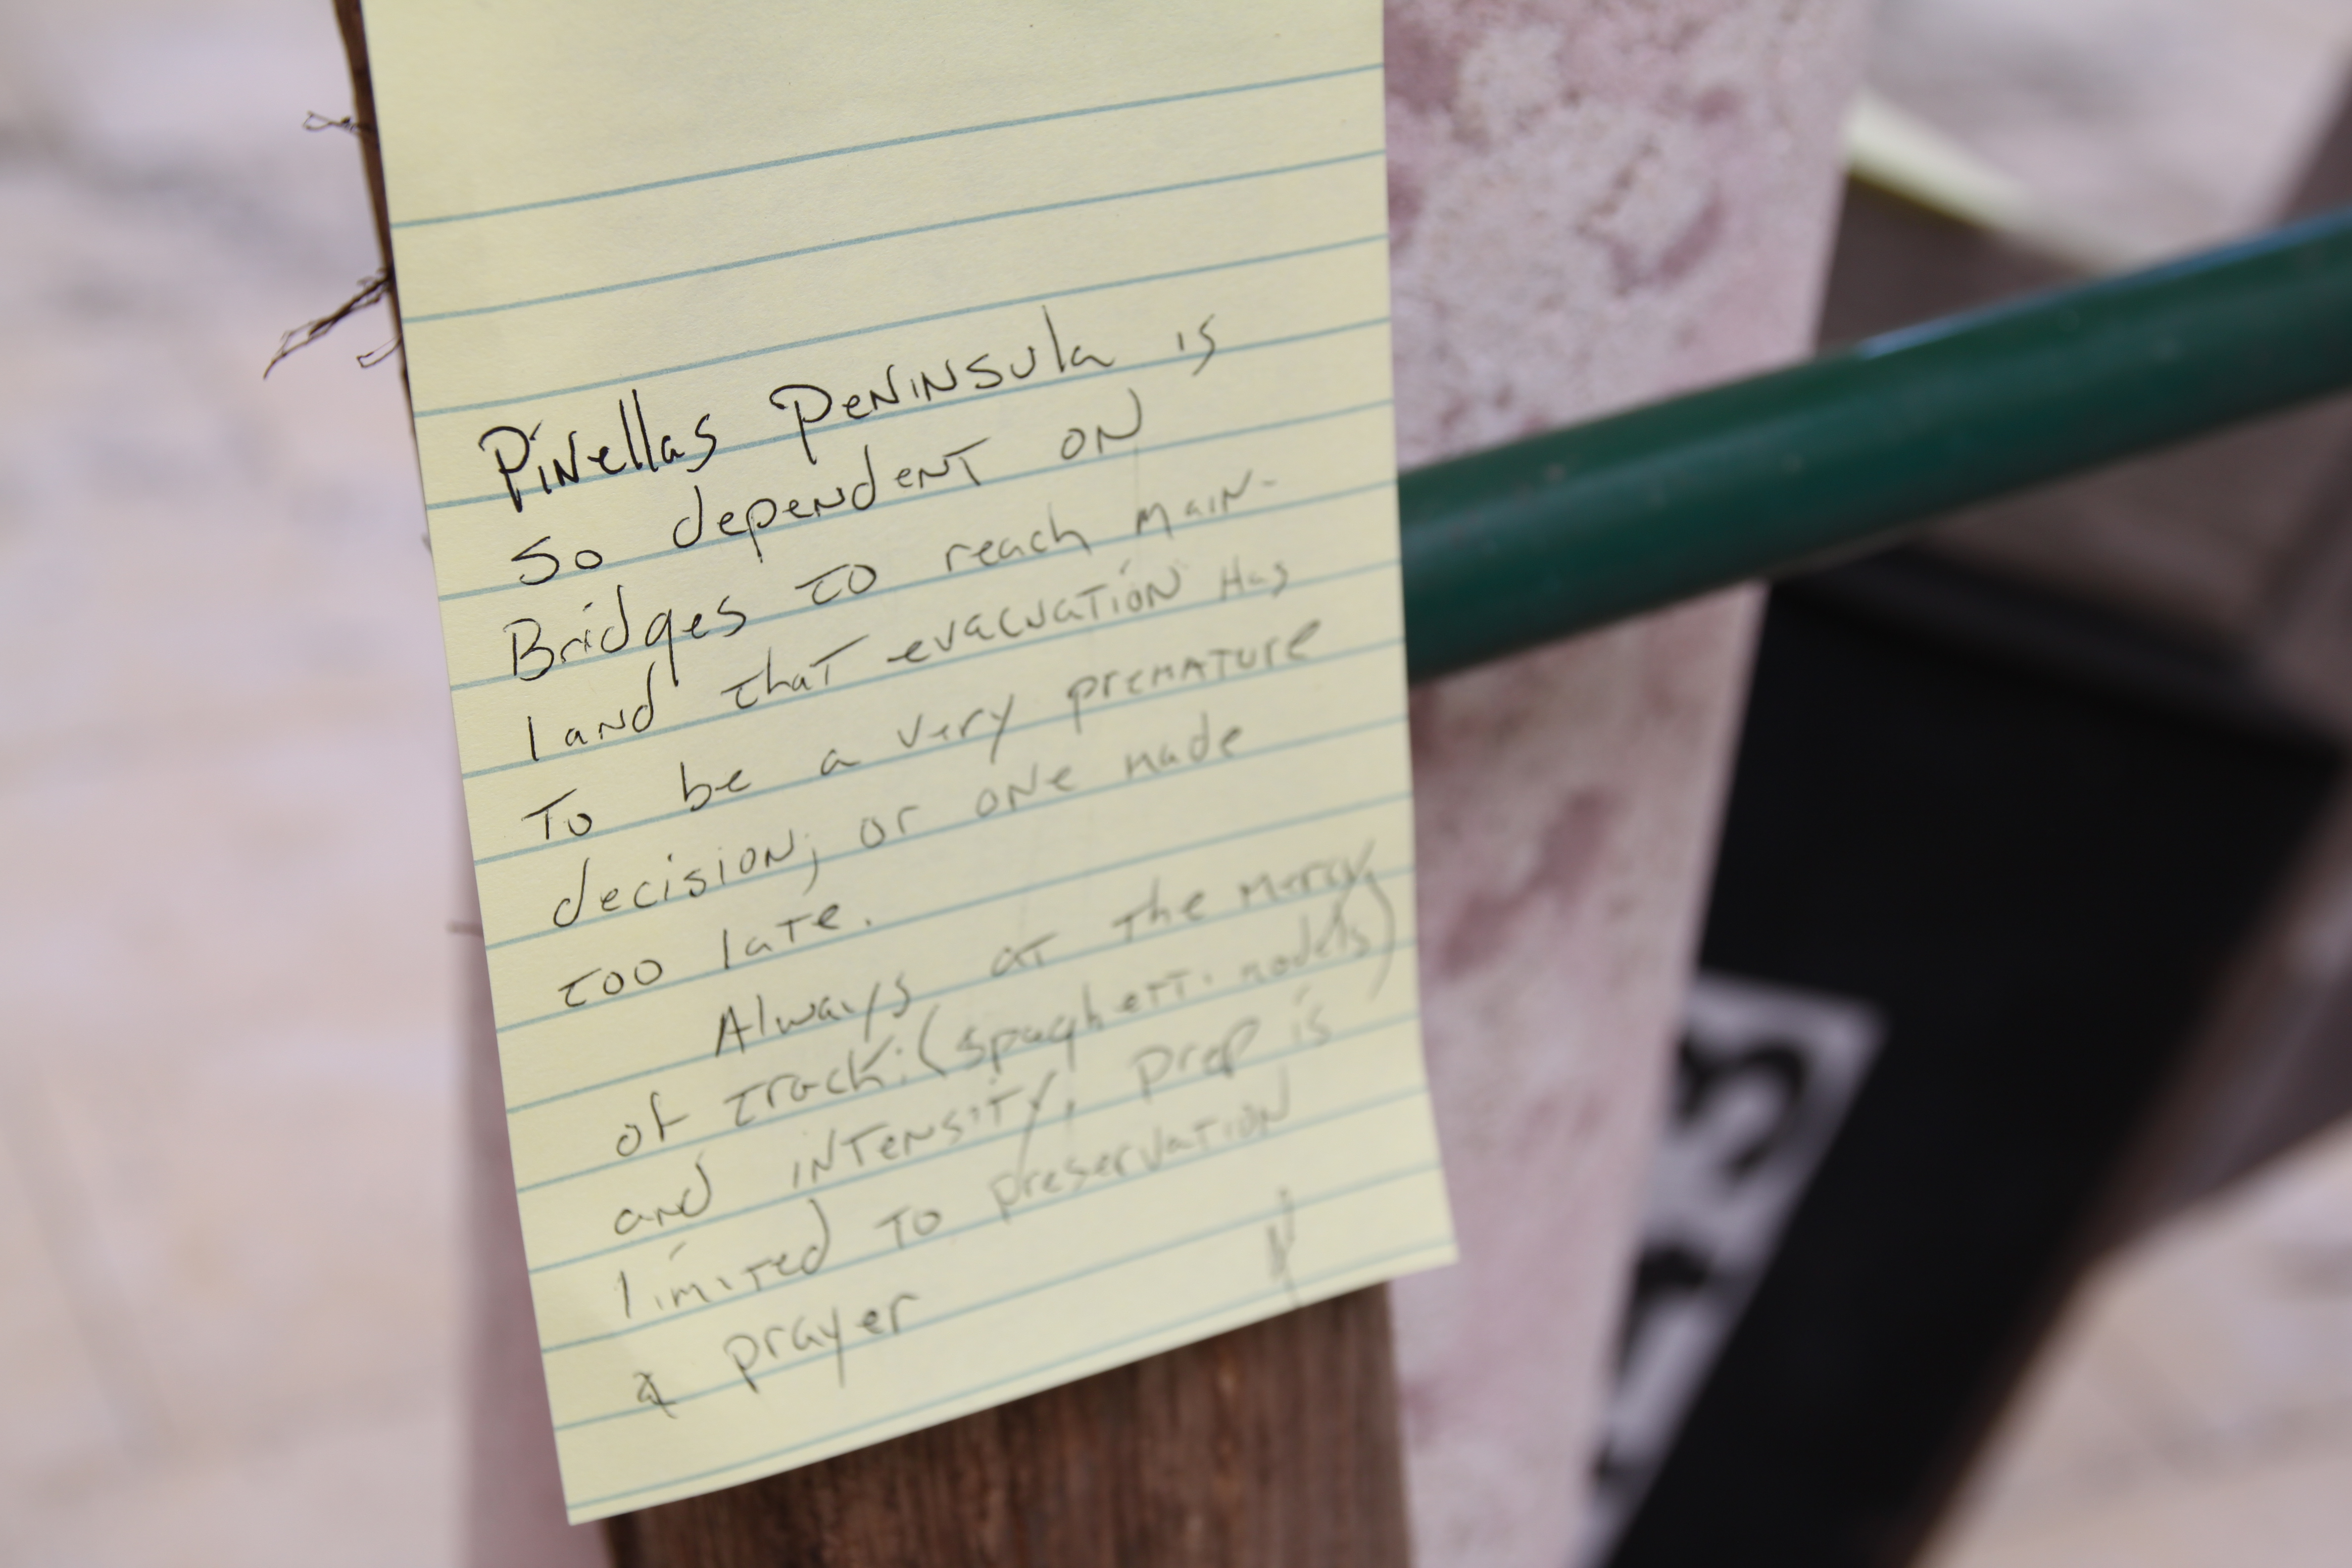 Pinellas Peninsula is
so dependent on
Bridges to reach main-
land that evacuation has
to be a very premature
decision; or one made
too late.
Always at the mercy
of track: (spaghetti models)
and intensity, prep is
limited to preservation
& prayer